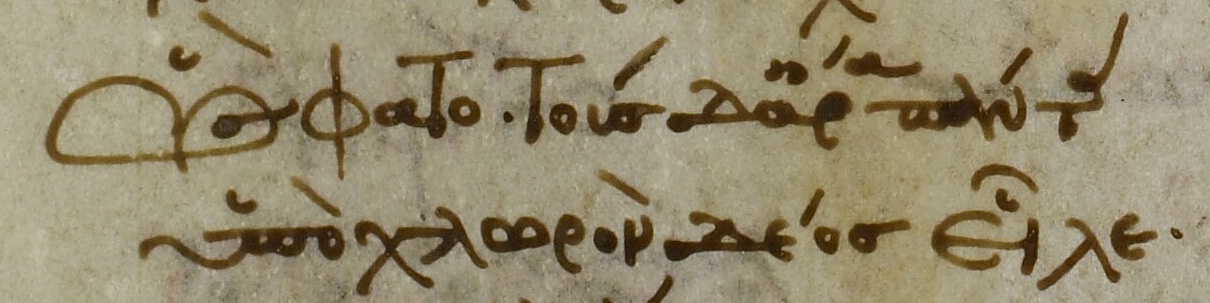 Ὣς φάτο· τούς δ' ἄρα πάντας
ὑπὸ χλωρὸν δέος εἷλε.